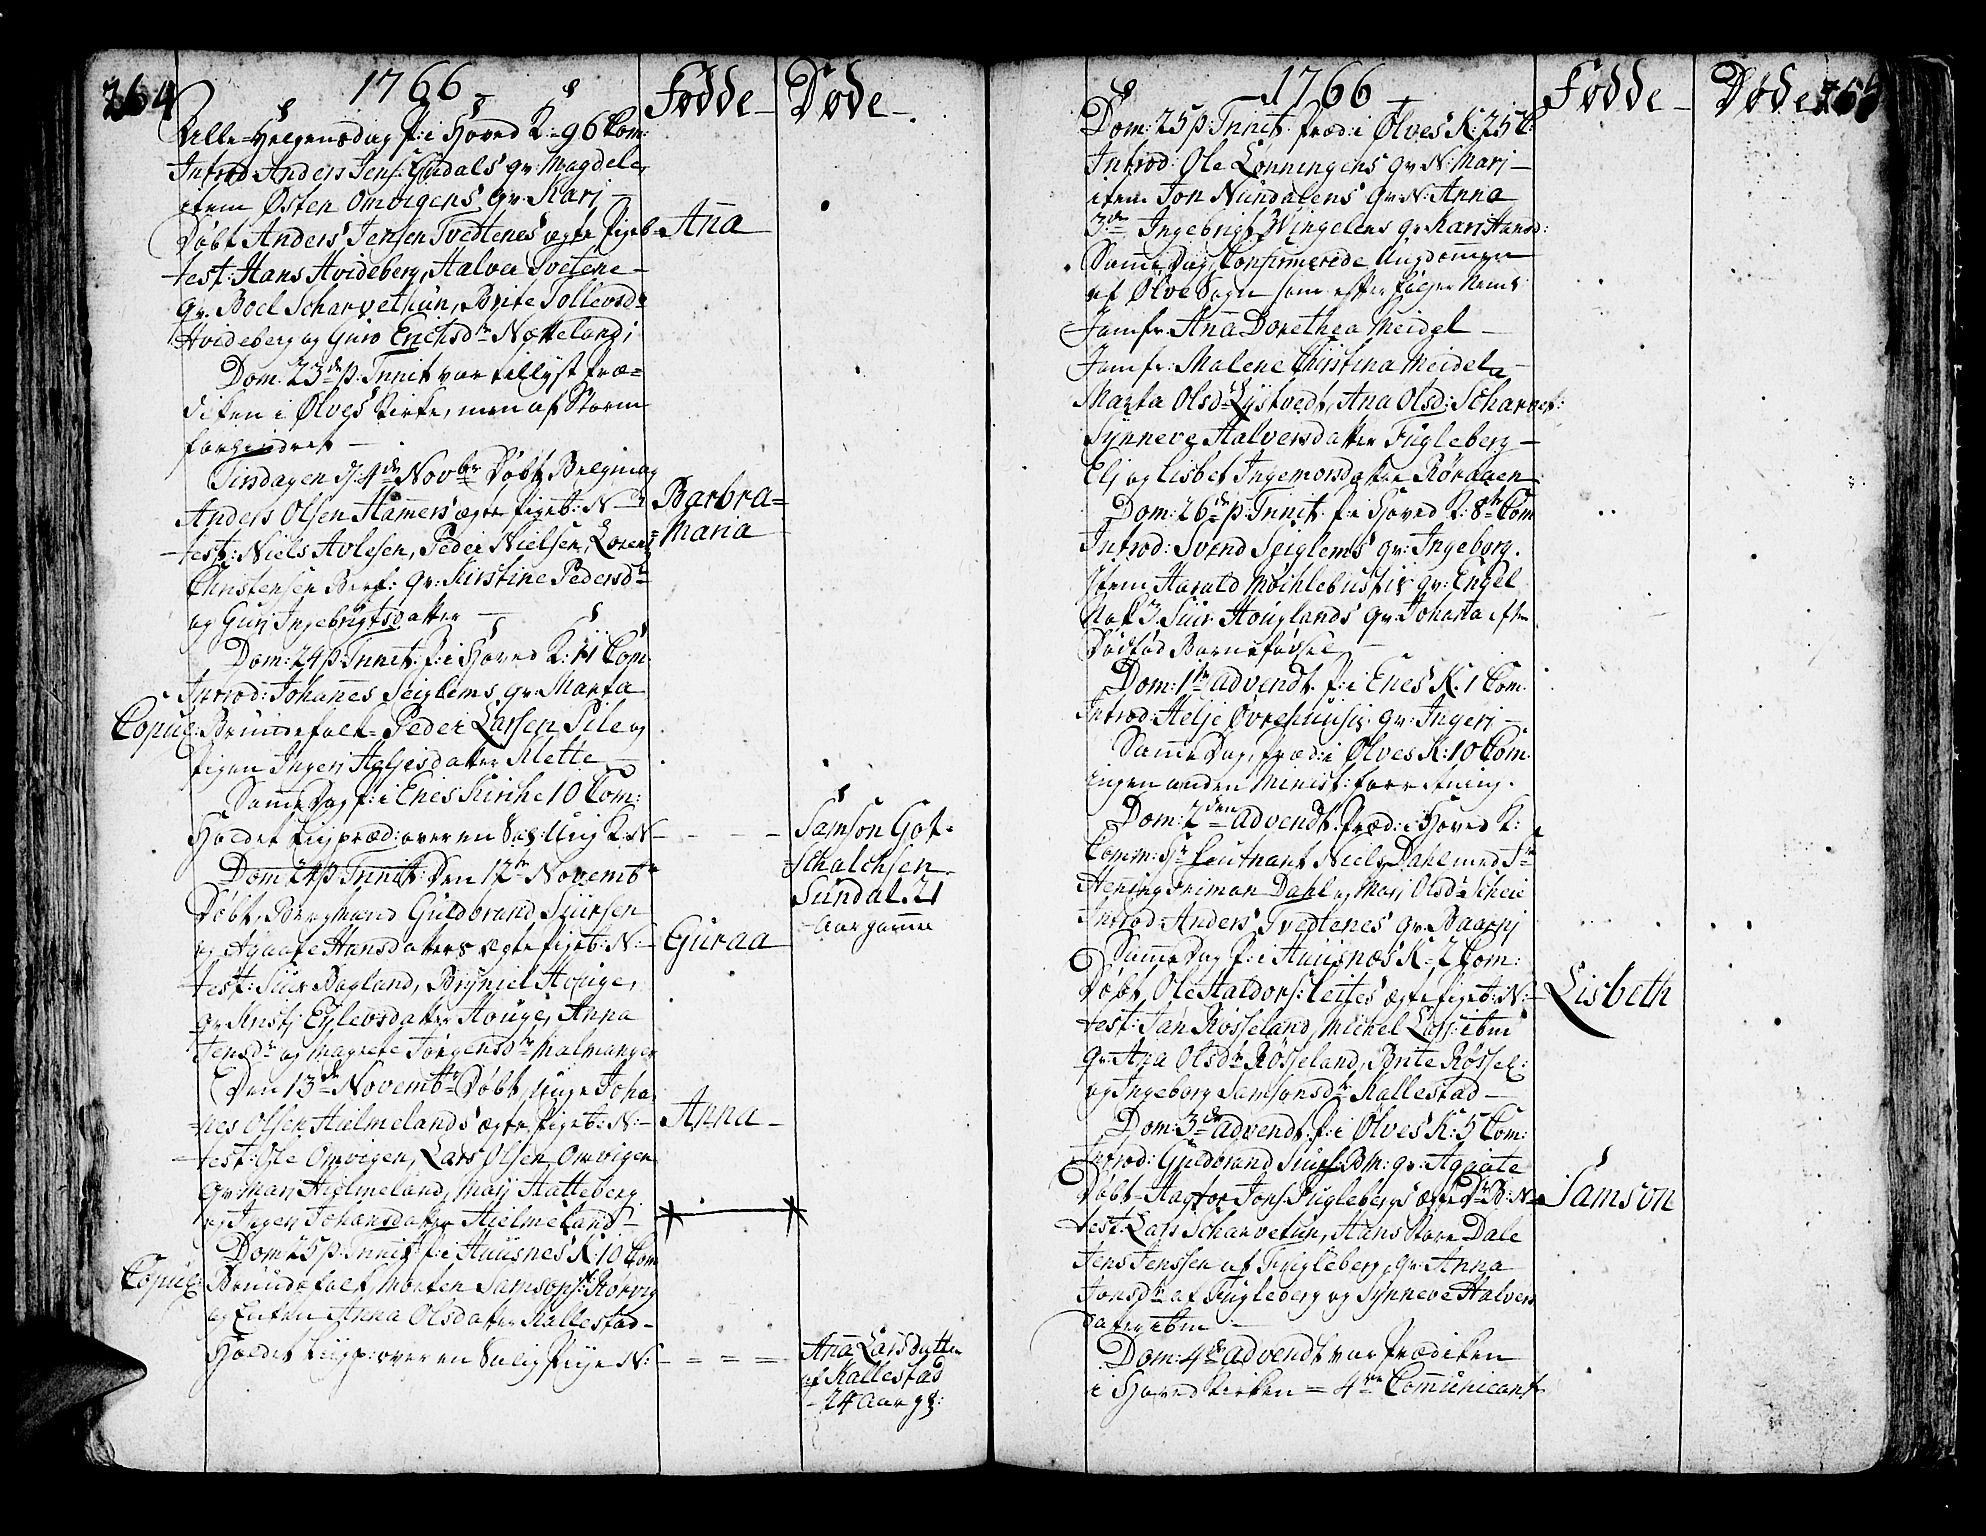 264
1766 -
Fødde -
Døde - .
Alle-Helgensdag P: i Hoved K: 96 Com:
Introd Anders Jens: Gudals qv: Magdele,
item Østen Omvigens qv: Kari -
Døbt Anders Jensen Tvedtenes ægte Pigeb -
Aña
test: Hans Hvideberg, Halvor Tvetene -
qv. Boel Scharvethun, Brite Tollevsdr
Hvideberg og Guro Erichsdr Nætteland;
Dom: 23de p: Trinit var tillyst Præ=
diken i Ølves Kirke, men af Storm
forhindret -
Tirsdagen d: 4de Novbr Døbt Bergmand
Anders Olsen Hamers ægte Pigeb: N -
Barbra=
Maria
test: Niels Avlesen, Peder Nielsen, Lorens
Christensen Berg: qv: Kirstine Pedersdr
og Guri Ingebrigtsdatter -
Dom: 24 p Trinit: P: i Hoved K: 11 Com:
Introd: Johañes Seiglems qv: Marta
Copul:
Brudefolk - Peder Larsen Pile og
Pigen Ingeri Heljesdatter Mette -
Same Dag P: i Enes Kirche 10 Com:
Holdet Liigpræd: over en Sal: Ung K: N -
Samson Got-
schalchsen
Sundal. 21
Aar gamel
Dom 24 p Trinit: Den 12te Novembr
Døbt, Bergmand Guldbrand Siursen
og Agaate Hansdatters ægte Pigeb: N: -
Guraa -
test: Siur Bagland, Bryniel Houge,
qv Kristj Eylevsdatter Houge, Anna
Jensdr og Magrete Jørgensdr Malmanger
Den 13de Novembr Døbt, unge Joha-
nes Olsen Hielmelands ægte Pigeb: N: -
Anna -
test: Ole Omvigen, Lars Olsen Omvigen
qv Marj Hielmeland, Marj Hatteberg
og Ingeri Johansdatter Hielmeland -
Dom 25 p: Trinit: P: i Huusnes K: 10 Com
Copul:
Brudefolk, Morten Samsons: Rørvig
og Enken Anna Olsdatter Kallestad -
Holdet Liigp: over en Salig Pige N:
Aña Larsdatter
af Kallestad
- 24 Aar gl:
1766
Fødde -
Døde 265
Dom: 25 p: Trinit: Præd: i Ølves K: 25 C:
Introd: Ole Lønningens qv N: Marj -
item Jon Nundalens qv N: Anna
3de Ingebrigt Vingelens qv Kari Hansd:
Same Dag, Confirmerede Ungdomen
af Ølve Sogn som efter følger Neml:
Jomfr: Aña Dorethea Meidel -
Jomfr: Malene Christina Meidel -
Marta Olsdr Lystvedt, Ana Olsd: Scharvet:
Synneve Halversdatter Fugleberg -
Eli og Lisbet Ingemorsdatter Røraaen
Dom: 26de p: Trinit: P: i Hoved K: 8te Com
Introd: Svend Seiglems qv: Ingeborg.
Item Harald Møchlebustir qv: Engel
Nok 3 Siur Houglands qv: Johana efter
Dødfød Barnefødsel -
Dom: 1te Advendt. P: i Enes K. 1 Com:
Introd: Helje Øvrehuusir qv: Ingeri -
Same Dag, Præd: i Ølves K: 10 Com:
ingen anden Minist: forretning.
Dom: 2den Advendt. Præd: i Hoved K:
Comm: Sr Leutnant Niels Dahl med Sr
Hening Dahl og Marj Olsdr Scheie
Introd: Anders Tvedtenes qv. Baarnj
Same Dag P: i Huusnæs K - 2 Com:
Døbt, Ole Haldors: Leites ægte Pigeb: N: -
Lisbeth
test: Jan Røsseland, Michel Lars: ibm
qv: Ana Olsdr Røsseland, Brite Røssel:
og Ingeborg Samsonsdr Kallestad -
Dom: 3de Advendt: P: i Ølves K: 5 Com:
Introd: Guldbrand Siurs: Bm: qv: Agaate
Døbt - Hagtor Jons: Fuglebergs ægte Dr:B: N -
Samson
test: Lars Scharvetun, Hans Store Dale
Jens Jenssen af Fugleberg, qv: Anna
Jonsdr af Fugleberg og Synneve Halvers
datter ibm -
Dom: 4de Advendt var Prædiken
i Hoved Kirken = 4re Comunicant